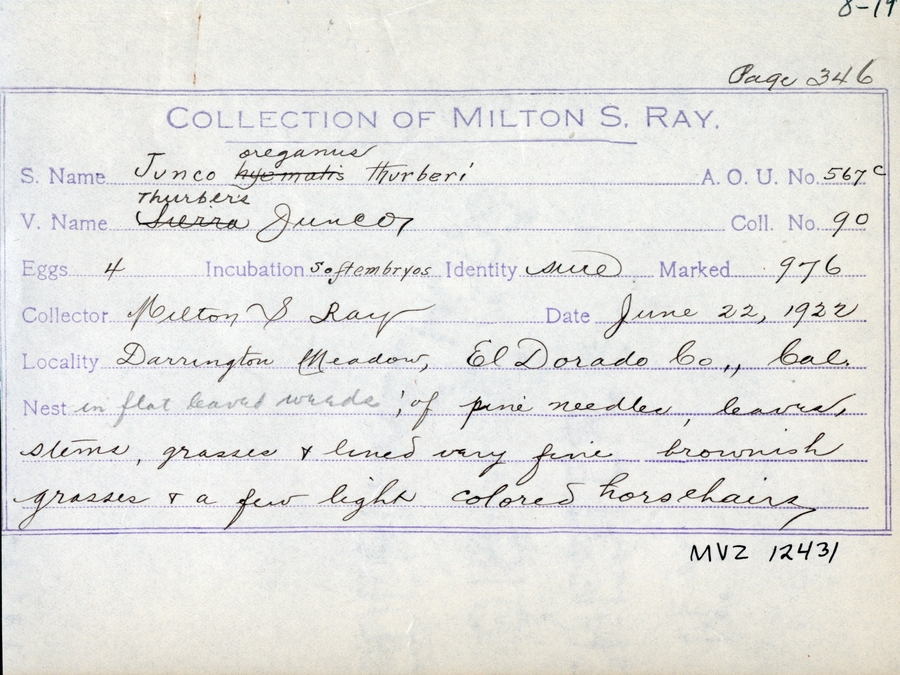 8-19
Page 346
COLLECTION OF MILTON S. RAY.
oreganus
S. Name Junco hyemalis thurberi A. O. U. No. 567c
Thurber's
V. Name Sierra Junco Coll. No. 90
Eggs 4 Incubation softembryos Identity sure Marked 976
Collector Milton S Ray Date June 22, 1922
Locality Darrington Meadow, El Dorado Co., Cal.
Nest in flat leaved weeds; of pine needles, leaves,
stems, grasses & lined very fine brownish
grasses & a few light colored horsehairs
MVZ 12431